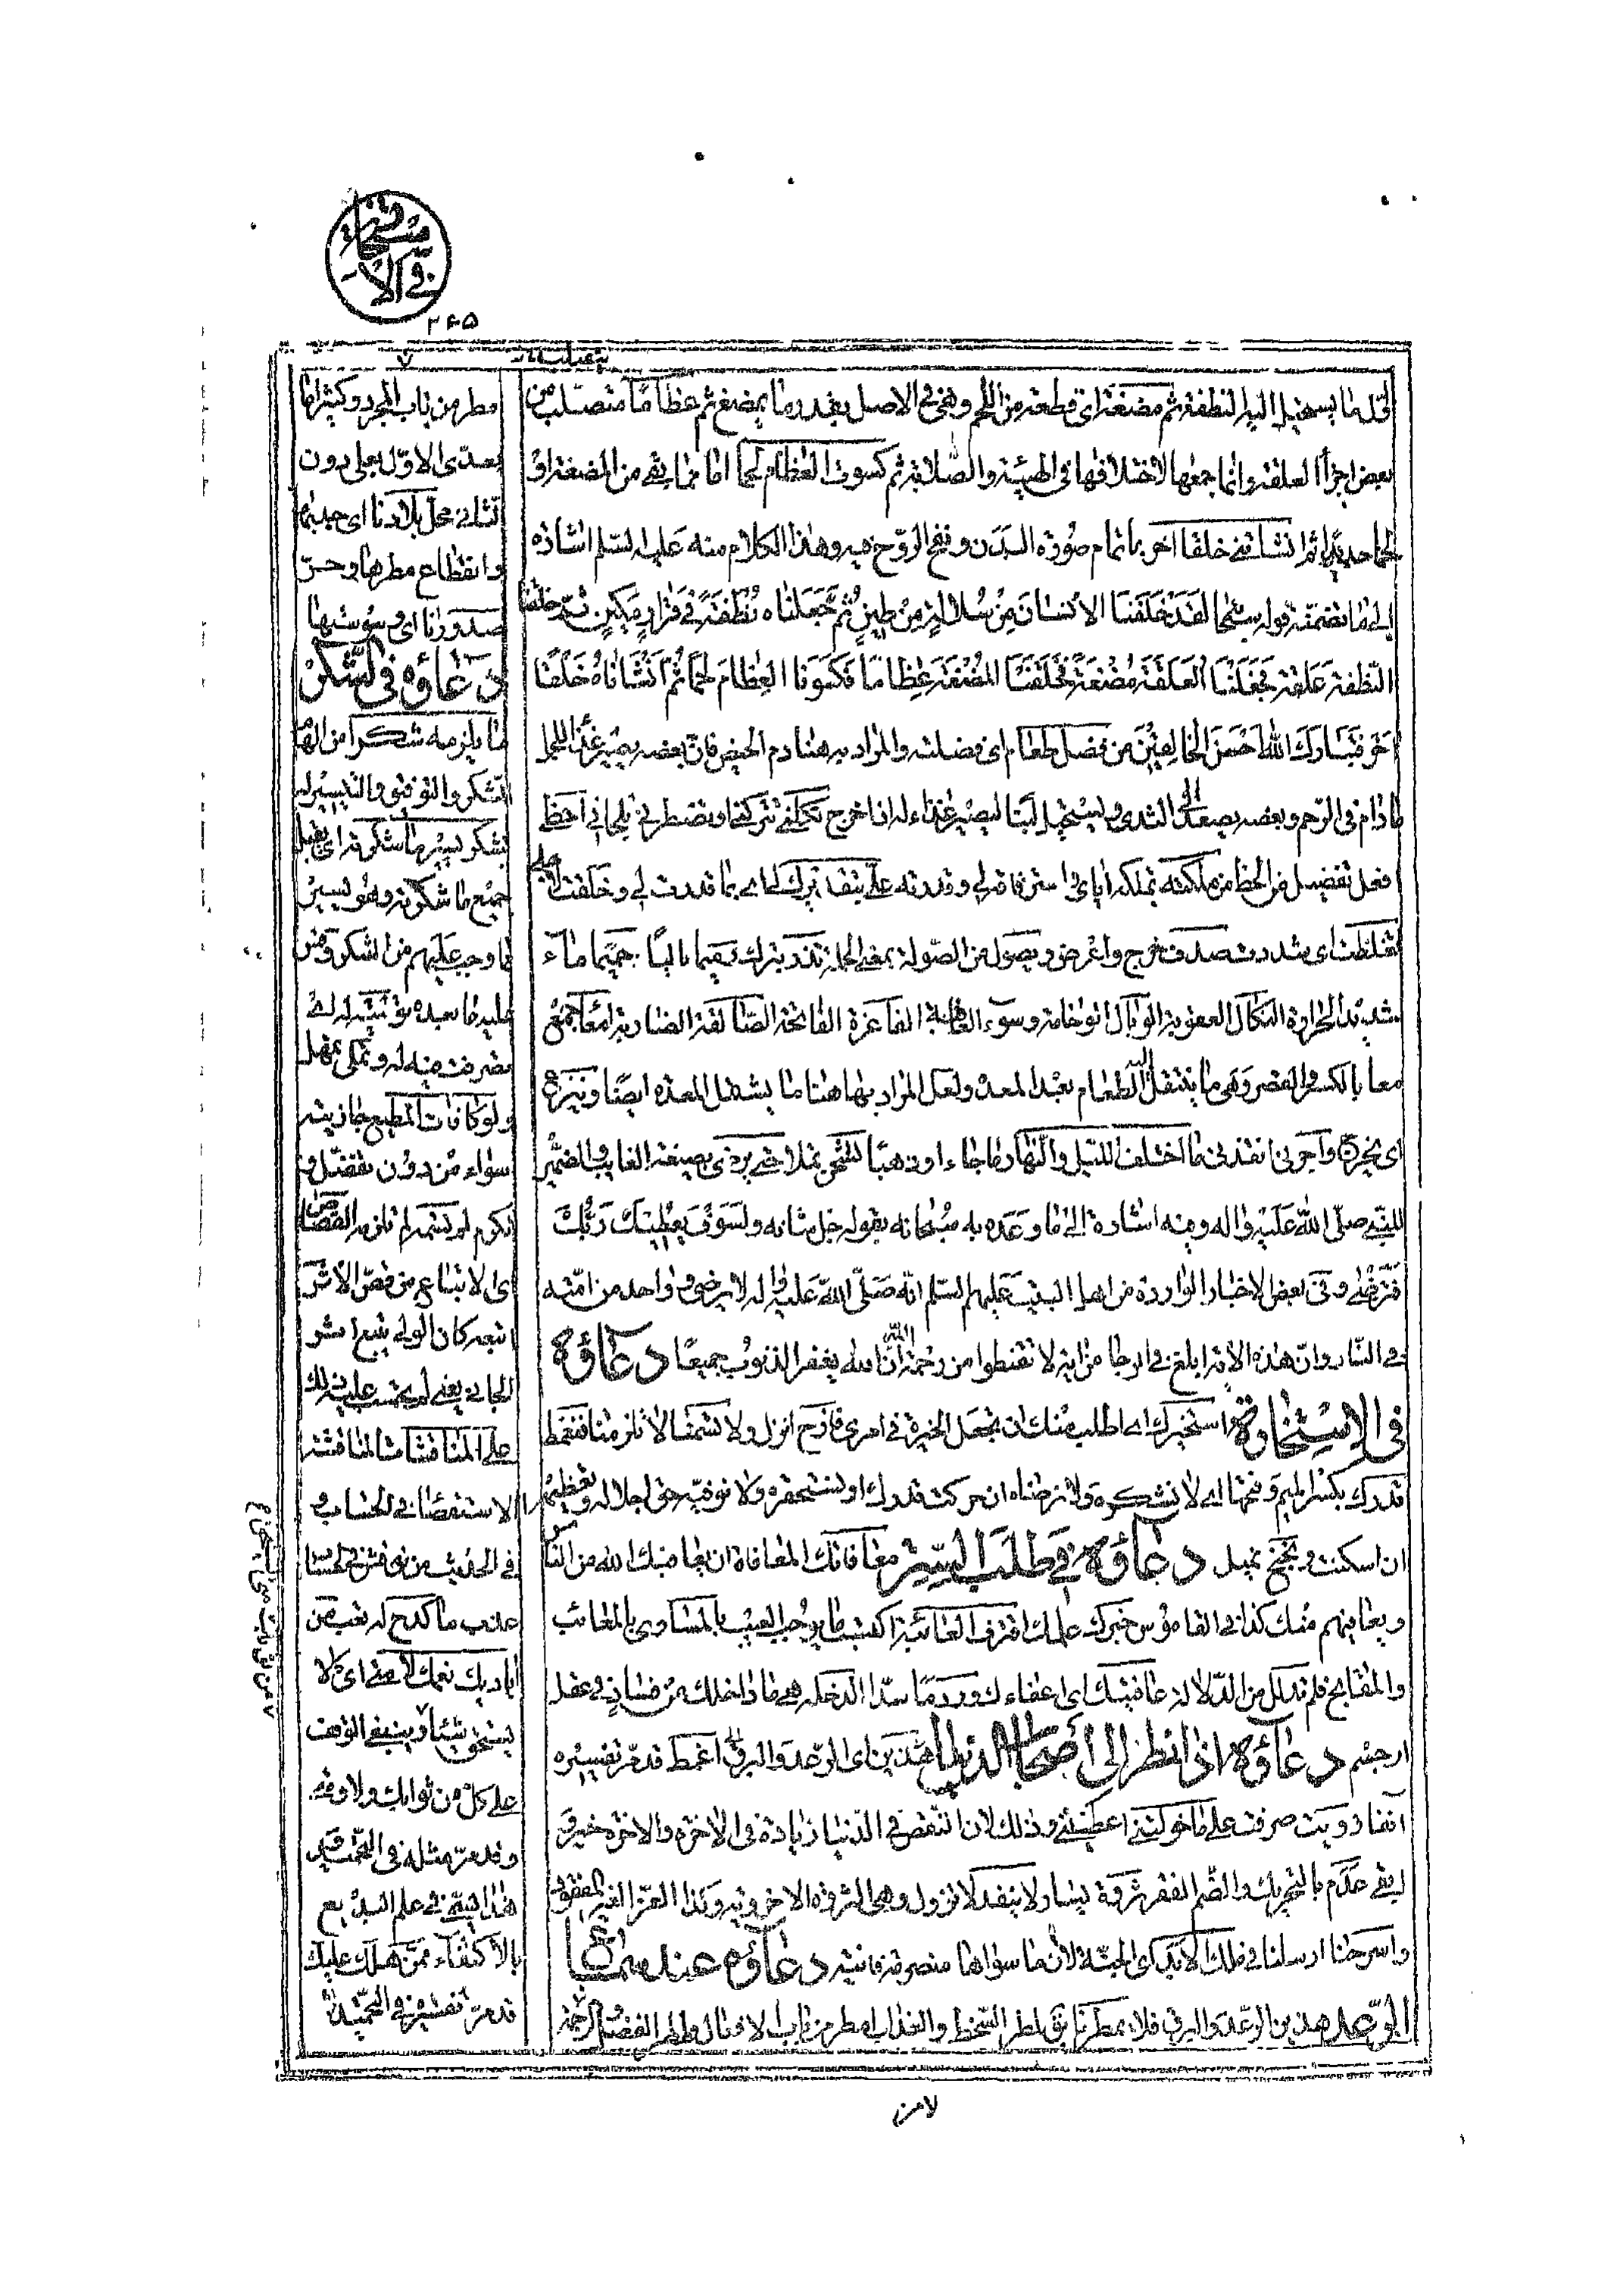 ۲۴۵
اوّل ما يستحيل اليه النطفة ثم مضغة اى قطعة من اللحم وهى فى الاصل بقدر ما يمضغ ثم عظاما متصلب من
بعض اجزاء العلقة وانما جمعها لاختلافها فى الهيئة والصلابة ثم كسوت العظام لحما اما مما بقى من المضغة او
لحما جديدا ثم انشاتنى خلقا اخر باتمام صورة البدن ونفخ الروح فيه وهذا الكلام منه عليه السلم اشارة
الى ما تضمنته قوله سبحانه لقد خلقنا الانسان من سلالة من طين ثم جعلناه نطفة فى قرار مكين ثم خلقنا
النطفة علقة فجعلنا العلقة مضغة فخلقنا المضغة عظاما فكسونا العظام لحما ثم انشاناه خلقا
اخر فتبارك الله احسن الخالقين من فضل طعام اى فضلته والمراد به هنا دم الحيض فان بعضه يصير غذاء للحمل
مادام فى الرحم وبعضه يصعد الى الثدى ويستحيل لبنا ليصير غذاء له اذا خرج تكلنى تتركنى او تضطرنى تلجانى احظى
افعل تفضيل من الحظ من ملكته تملكه اياى استرقاقه لى وقدرته على بتقديرك لى اى بما قدرت لى وخلقت لاجلى
تغلظت اى شددت صدف خرج واعرض ويصول من الصولة بمعنى الحملة تذر تترك رميما باليا حميما ماء
شديد الحرارة النكال العقوبة الوبال الوخامة وسوء العاقبة الفاغرة الفاتحة الصالقة الضاربة امعا جمع
معا بالكسر والقصر وهى ما ينتقل اليه الطعام بعد المعدة ولعل المراد بها هنا ما يشمل المعدة ايضا وينزع
اى يخرج واجرنى انقذنى ما اختلف الليل والنهار ما جاءا وذهبا لتشحن بملا حتى يرضى بصيغة الغايب والضمير
للنبى صلى الله عليه واله وفيه اشارة الى ما وعده به سبحانه بقوله جل شانه ولسوف يعطيك ربك
فترضى وفى بعض الاخبار الواردة من اهل البيت عليهم السلم انه صلى الله عليه واله لا يرضى وواحد من امته
فى النار وان هذه الاية ابلغ فى الرجا من اية لا تقنطوا من رحمة الله ان الله يغفر الذنوب جميعا دعاؤه
فى الاستخارة واستخيرك اى اطلب منك ان تجعل الخيرة فى امرى فازح ازل ولا تسمنا لا تلزمنا فنغمط
قدرك بكسر الميم وفتحها اى لا نشكره ولا نرضاه ان حركت قدرك او نستحقره ولا نوفيه حق اجلاله وتعظيمه
ان اسكنت ونجنح نميل دعاؤه فى طلب الستر معافاتك المعافاة ان يعافيك الله من الناس
ويعافيهم منك كذا فى القاموس خبرك علمك اقترف العائبة اكتسب ما يوجب العيب بالمساوى بالمعائب
والمقابح فلم تدلل من الدلالة عافيتك اى اعفاءك وردما سدا الدخلة هى ما داخلك من فساد فى عقل
او جسم دعاؤه اذا نظر الى اصحاب الدنيا
انفا زويت صرفت على ما خولتنى اعطيتنى وذلك لان النقص فى الدنيا زيادة فى الاخرة والاخرة خير و
ابقى عدم بالتحريك والضم الفقر ثروة يسار لا ينفد لا تزول وهى الثروة الاخروية وكذا العز الغير المفقود
واسرحنا ارسلنا فى ملك الابد اى الجنة لان ما سواها منصرمة فانية دعاؤه عند سماع
الرعد هذين الرعد والبرق فلا تمطرنا بهما مطر السخط والعذاب امطر من باب الافعال والمطر الفضل والرحمة
مطر من باب المجرد وكثيرا ما
يعدى الاول بعلى دون
الثانى محل بلادنا اى جدبها
وانقطاع مطرها وحر
صدورنا اى وسوستها
دعاؤه فى الشكر
ما يلزمه شكرا من الهام
الشكر والتوفيق والتيسير له
تشكر يسير ما شكرته اى تقبل
جميع ما شكرته وهو يسير
ما وجب عليهم من الشكر ومن
ولو كافات المطيع جازيته
سواء من دون تفضل و
تكرم لم تسمه لم تلزمه القصاص
اى الاتباع من قص الاثر
اتبعه كان الولى يتبع اثر
الجانى يعنى لم يحتسب عليه ذلك
على المناقشات المناقشة
الاستقصاء فى الحساب و
فى الحديث من نوقش فى الحساب
عذب ما كدح له تعب من
اياديك نعمك لا متى اى لا
يستحق شيئا ويبقى الوقت
على كل من ثوابك ولا وقد
وقد مر مثله فى التحميد
هذا البقى فى علم البديع
بالاكتفاء ممن هلك عليك
قد مر تفسيره فى التحميد
لامن